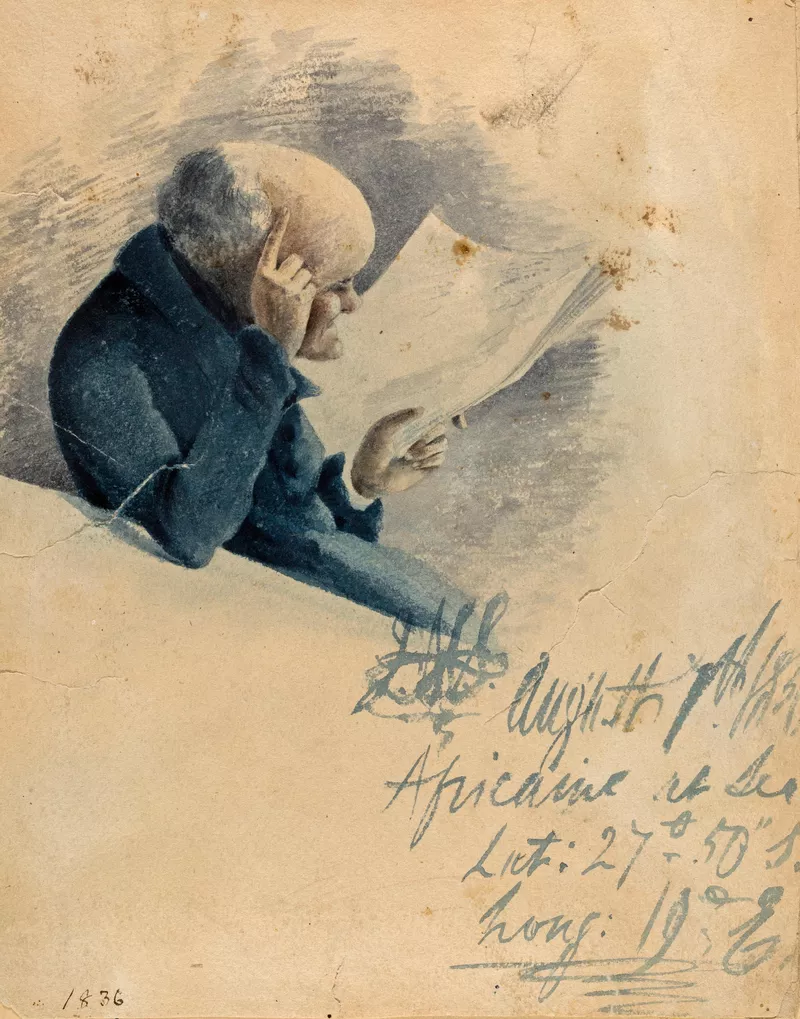 August 7th
Africaine at Sea
Lat: 27° 50" S.
Long: 19° E.
1836